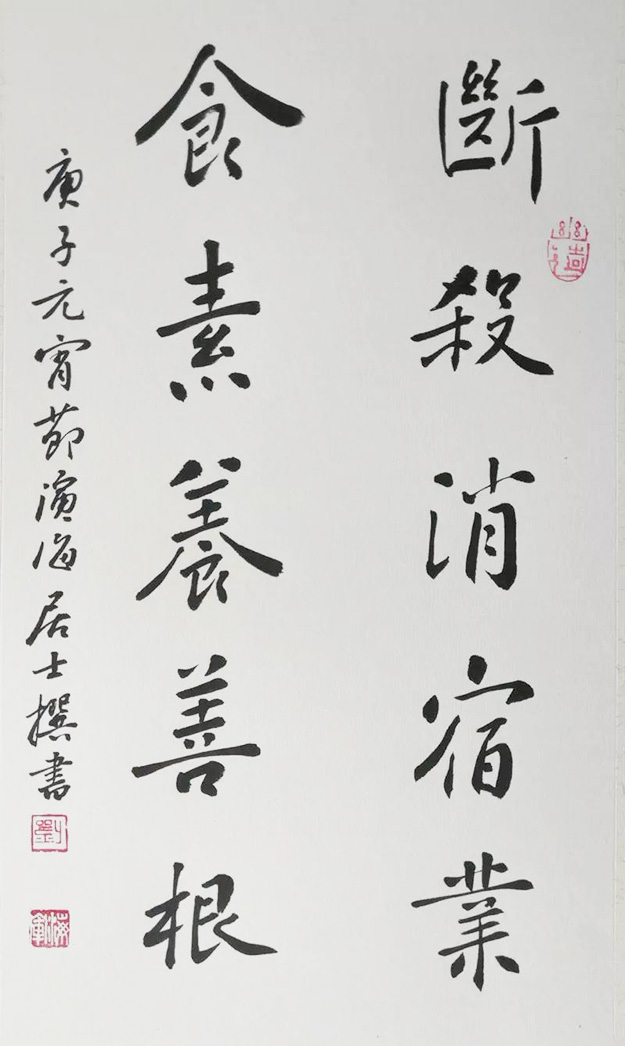 斷殺消宿業
食素養善根
庚子元宵節濱海居士撰書
劉